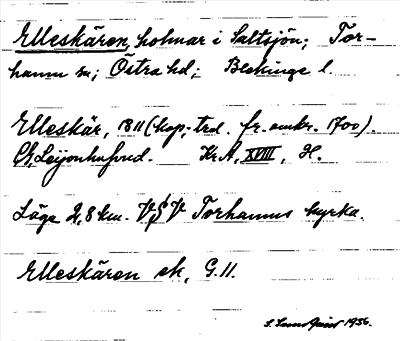 Elleskären, holmar i Saltsjön; Tor-
hamn sn; Östra hd; Blekinge l.
Elleskär, 1811 (kop. trol. fr. omkr. 1700).
Leijonhufvud. KrA, XVIII, H.
Läge 2,8 km. V Torhamns kyrka.
Elleskären ek, G.11.
1956.